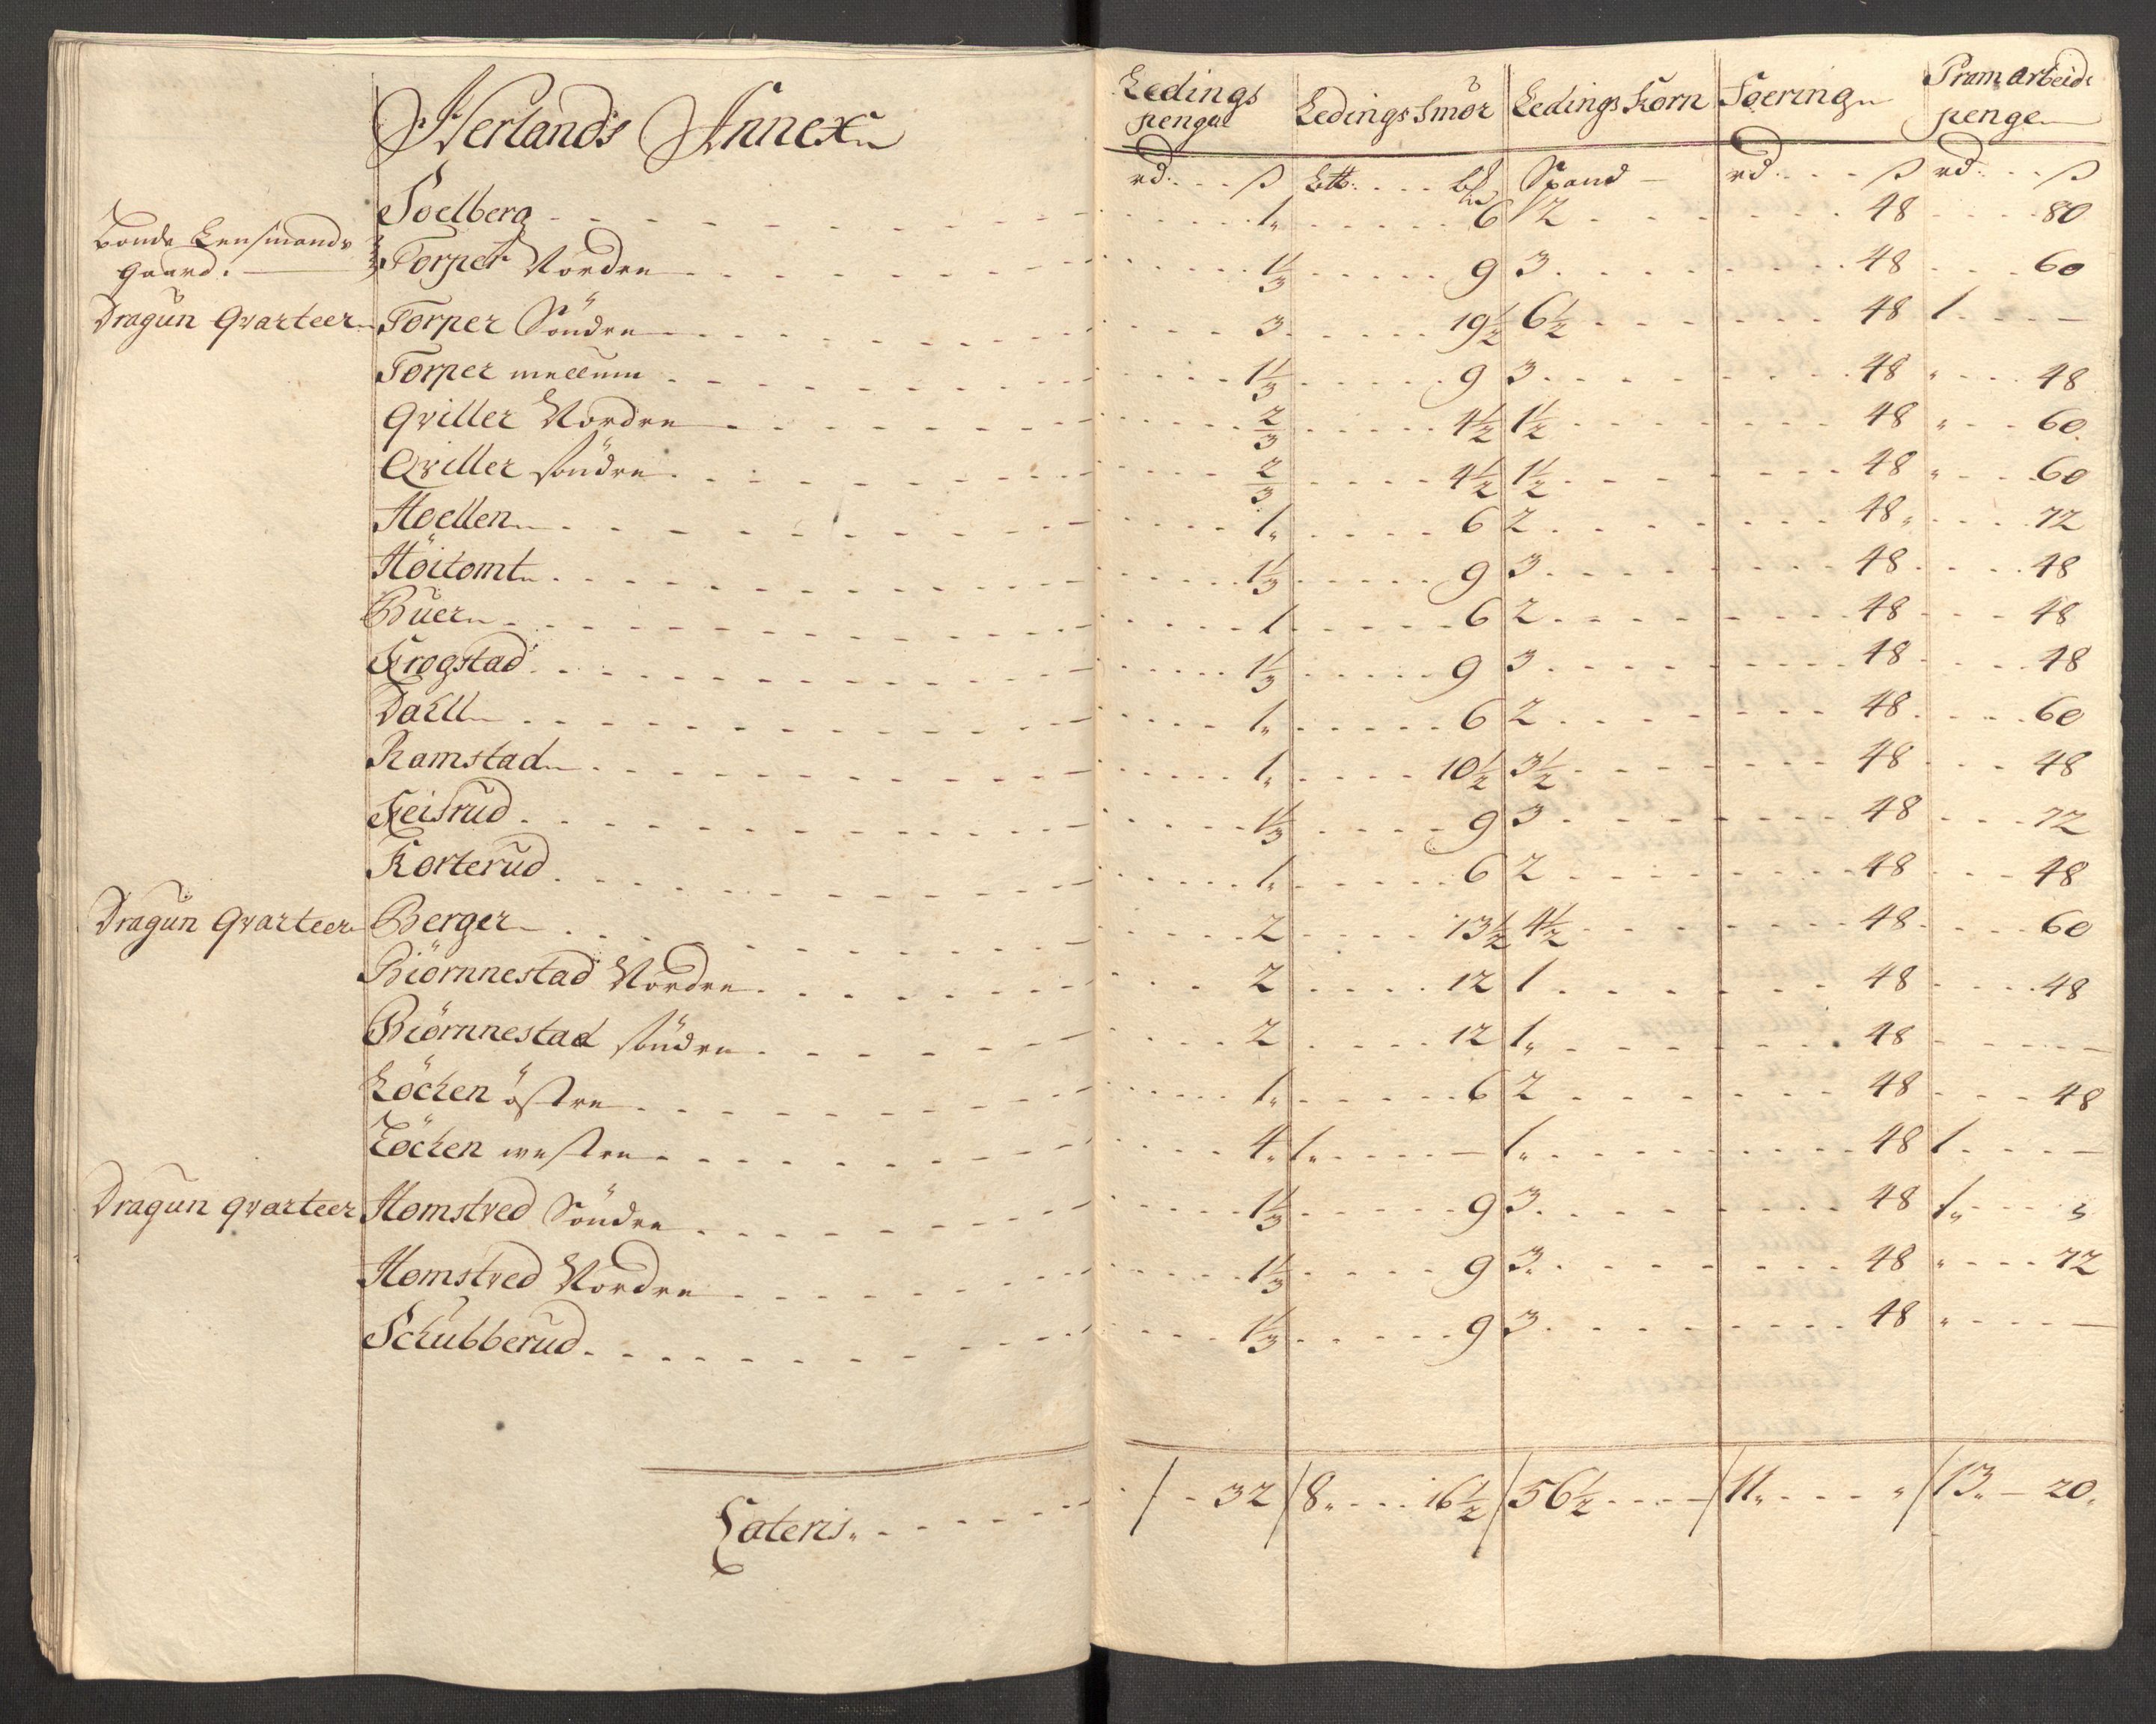 Herlands Annex
Ledings pengæ | Ledings Smör | Ledings Korn | Foering | Pram arbeids penge
rd: ß | L℔: | Spand | rd: ß | rd: ß
Soelberg | 1 | 6 | 2 | 48 | 80
Bonde Lensmands gaard. Torper Nordre | 1⅓ | 9 | 3 | 48 | 60
Dragun Qvarteer Torper Söndre | 3 | 19½ | 6½ | 48 | 1 –
Torper mellum | 1⅓ | 9 | 3 | 48 | 48
Qviller Nordre | ⅔ | 4½ | 1½ | 48 | 60
Qviller söndre | ⅔ | 4½ | 1½ | 48 | 60
Hoellen | 1 | 6 | 2 | 48 | 72
Höitomt | 1⅓ | 9 | 3 | 48 | 48
Buer | 1 | 6 | 2 | 48 | 48
Krogstad | 1⅓ | 9 | 3 | 48 | 48
Dahll | 1 | 6 | 2 | 48 | 60
Ramstad | 1 | 10½ | 3½ | 48 | 48
Keisrud | 1⅓ | 9 | 3 | 48 | 72
Korterud | 1 | 6 | 2 | 48 | 48
Dragun Qvarteer Berger | 2 | 13½ | 4½ | 48 | 60
Biörnnestad Nordre | 2 | 12 | 1 | 48 | 48
Biörnnestad söndre | 2 | 12 | 1 | 48 | –
Löchen östre | 1 | 6 | 2 | 48 | 48
Löchen westre | 4 | 1 – | 1 | 48 | 1 –
Dragun qvarteer Homstved Söndre | 1⅓ | 9 | 3 | 48 | 1
Homstved Nordre | 1⅓ | 9 | 3 | 48 | 72
Schubberud | 1⅓ | 9 | 3 | 48 | –
Lateris | 32 | 8 16½ | 56½ | 11 | 13 – 20